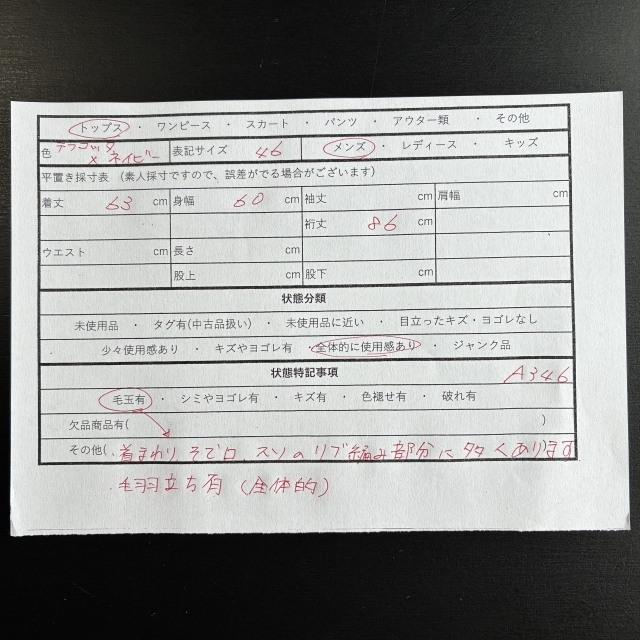 トップス ・ ワンピース ・ スカート ・ パンツ ・ アウター類 ・ その他
色 テラコッタ × ネイビー 表記サイズ 46 メンズ ・ レディース ・ キッズ
平置き採寸表 (素人採寸ですので、誤差がでる場合がございます)
着丈 63 cm 身幅 60 cm 袖丈 cm 肩幅 cm
裄丈 86 cm
ウエスト cm 長さ cm
股上 cm 股下 cm
状態分類
未使用品 ・ タグ有(中古品扱い) ・ 未使用品に近い ・ 目立ったキズ・ヨゴレなし
少々使用感あり ・ キズやヨゴレ有 ・ 全体的に使用感あり ・ ジャンク品
状態特記事項 A346
毛玉有 ・ シミやヨゴレ有 ・ キズ有 ・ 色褪せ有 ・ 破れ有
欠品商品有( )
その他( 首まわり、そで口、スソのリブ編み部分に多くあります
毛羽立ち有 (全体的)